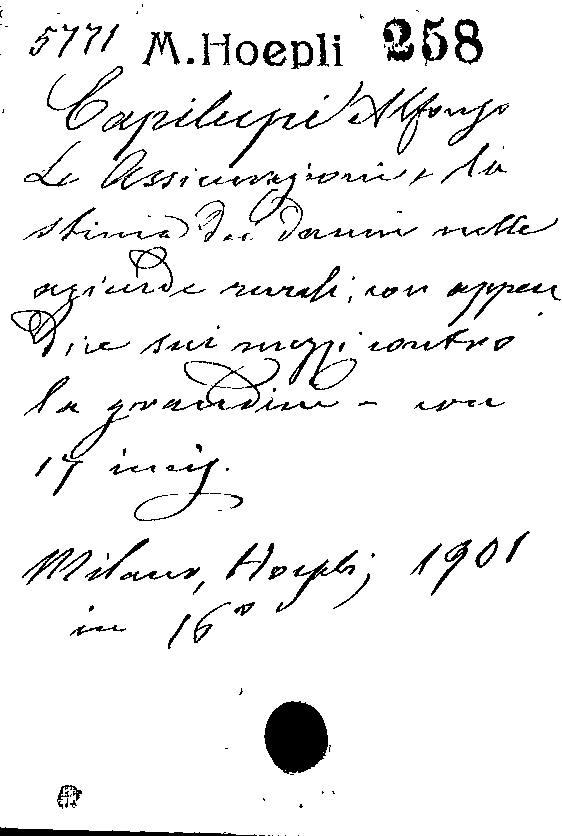 5771 M. Hoepli 258
Capilupi Alfonso
Le Assicurazioni e la
stima dei danni nelle
aziende rurali, con appen
dice sui mezzi contro
la grandine - con
17 incis.
Milano, Hoepli, 1901
in 16°